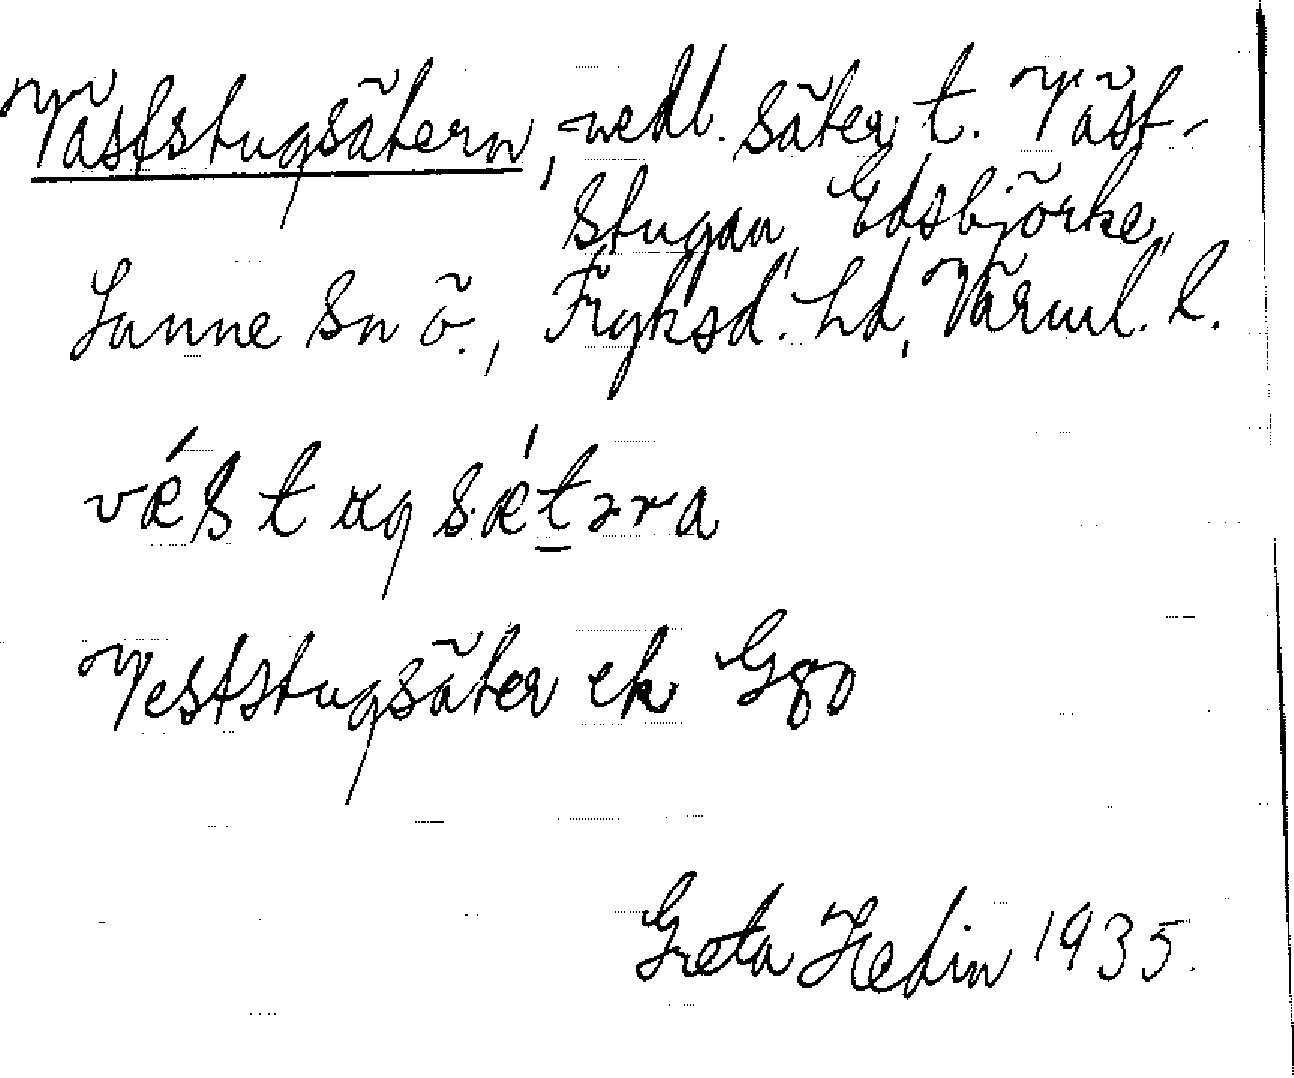 Väststugsätern, nedl. säter t. Väst-
stugan, Edsbjörke,
Sunne sn ö., Fryksd. hd, Värml. l.
vǽstugsǽtərra
Veststugsäter ek
Greta Hedin 1935.